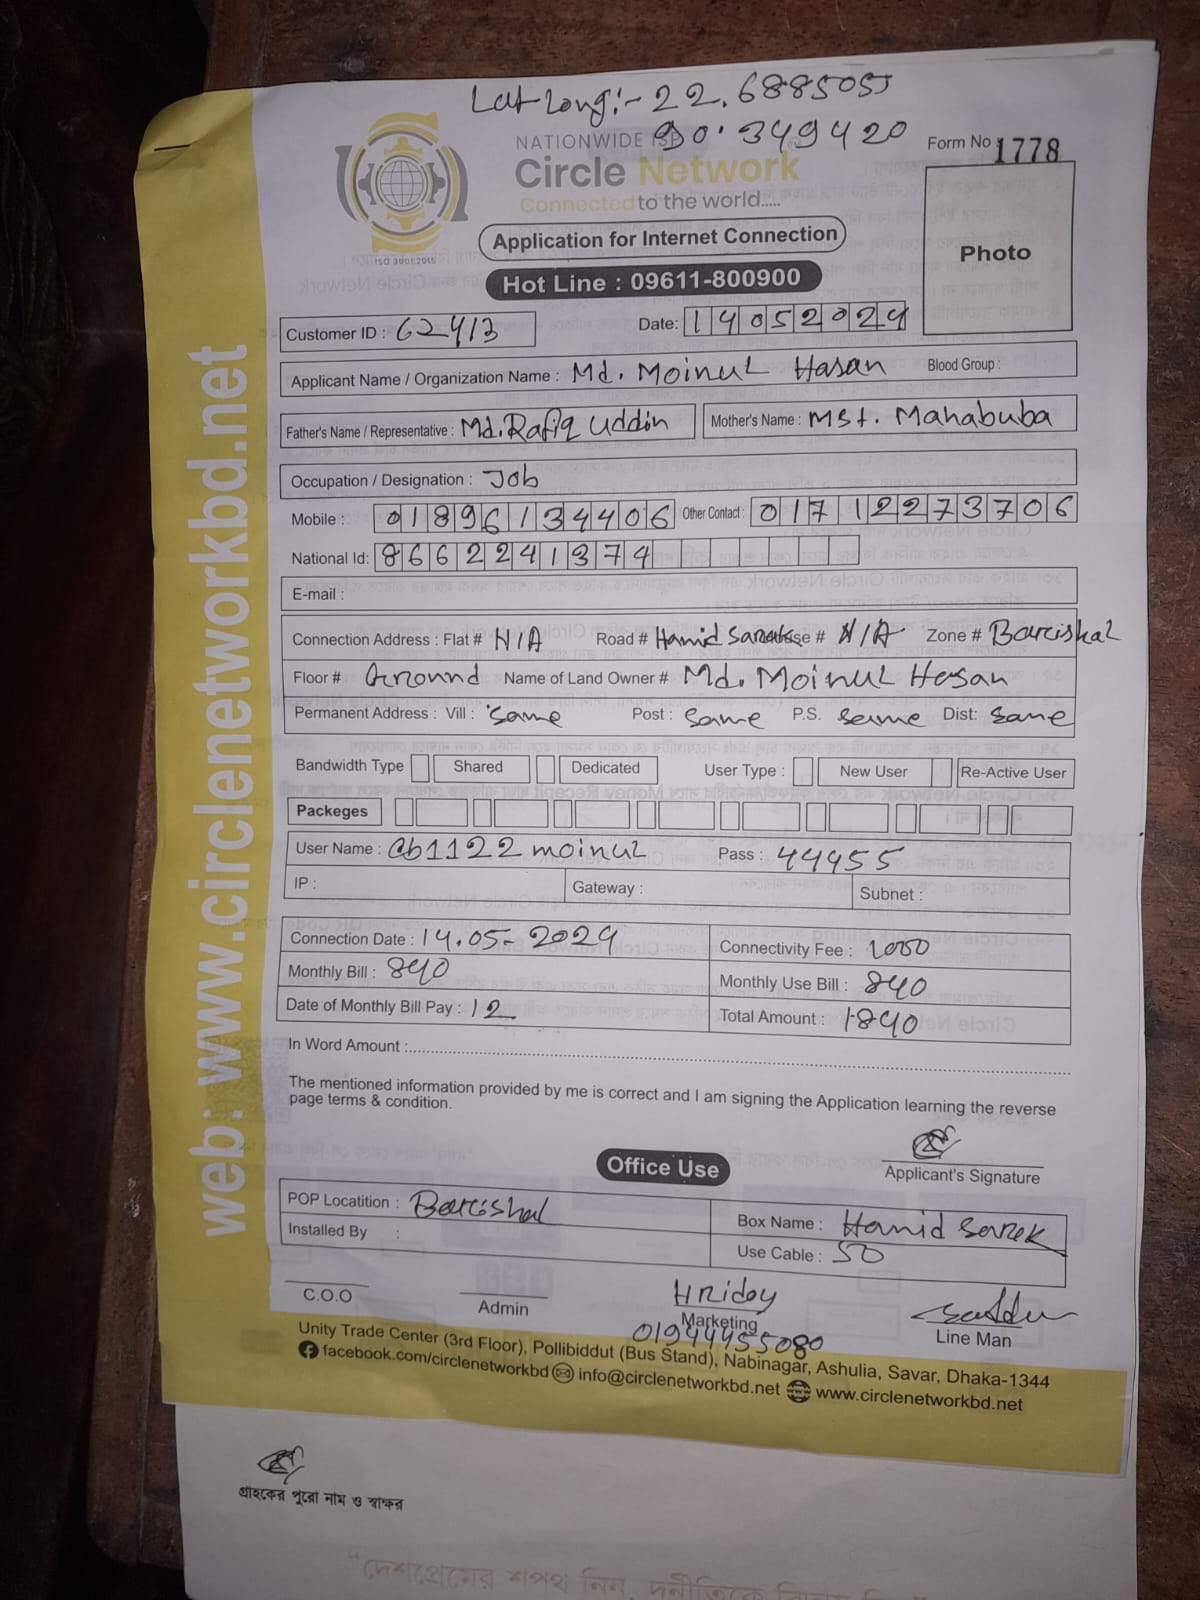 Lat Long:- 22.6885055
90.349420
NATIONWIDE ISP
Circle Network
Connected to the world.....
ISO 9001:2015
Form No 1778
Photo
Application for Internet Connection
Hot Line : 09611-800900
Customer ID : 62413
Date: 14052024
Applicant Name / Organization Name : Md. Moinul Hasan Blood Group :
Father's Name / Representative : Md. Rafiq Uddin Mother's Name : Mst. Mahabuba
Occupation / Designation : Job
Mobile : 01896134406 Other Contact : 01712273706
National Id: 8662241374
E-mail :
Connection Address : Flat # N/A Road # Hamid Sarak House # N/A Zone # Barcishal
Floor # Ground Name of Land Owner # Md. Moinul Hasan
Permanent Address : Vill : Same Post : Same P.S. Same Dist: Same
Bandwidth Type Shared Dedicated User Type : New User Re-Active User
Packeges
User Name : cb1122moinul Pass : 44455
IP : Gateway : Subnet :
Connection Date : 14.05-2024 Connectivity Fee : 1000
Monthly Bill : 840 Monthly Use Bill : 840
Date of Monthly Bill Pay : 12 Total Amount : 1840
In Word Amount :
The mentioned information provided by me is correct and I am signing the Application learning the reverse
page terms & condition.
Applicant's Signature
Office Use
POP Locatition : Barcishal Box Name : Hamid Sarek
Installed By : Use Cable : 50
C.O.O Admin Hridoy Marketing Line Man
01944455080
Unity Trade Center (3rd Floor), Pollibiddut (Bus Stand), Nabinagar, Ashulia, Savar, Dhaka-1344
facebook.com/circlenetworkbd info@circlenetworkbd.net www.circlenetworkbd.net
web: www.circlenetworkbd.net
গ্রাহকের পুরো নাম ও স্বাক্ষর
“দেশপ্রেমের শপথ নিন, দুর্নীতিকে বিদায়